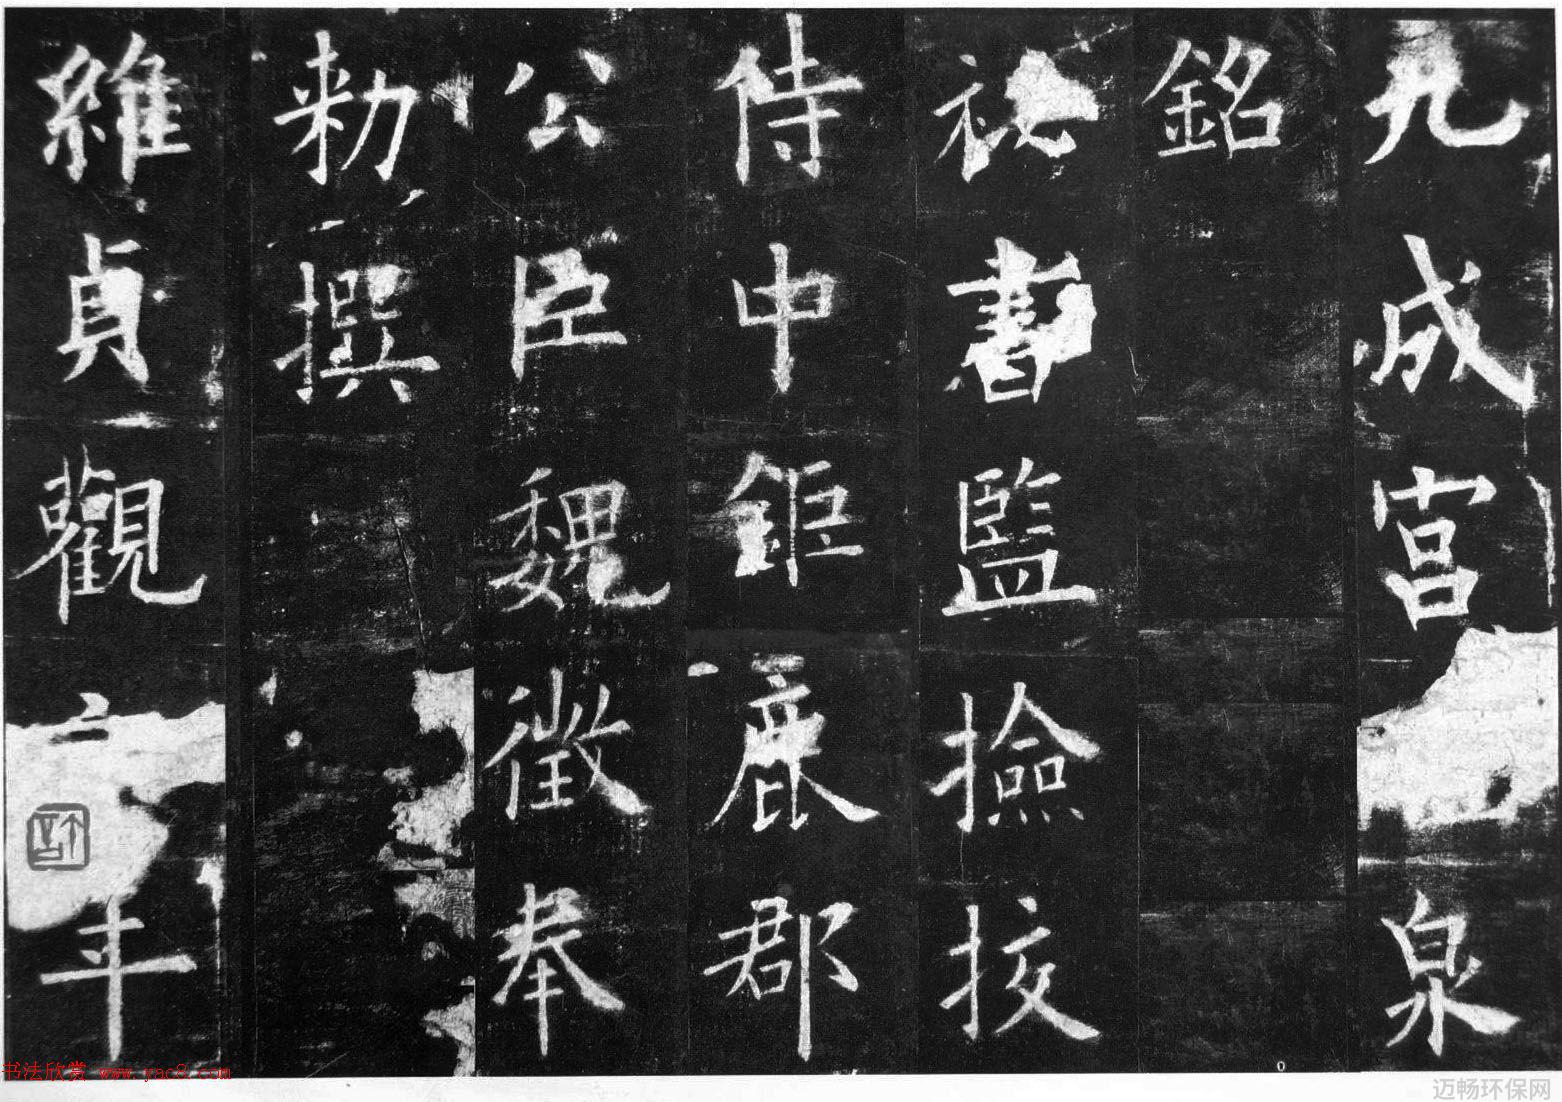 九成宮泉
銘
祕書監撿挍
侍中鉅鹿郡
公臣魏徵奉
勑撰
維貞觀年
书法欣赏 www.yac8.com
迈畅环保网